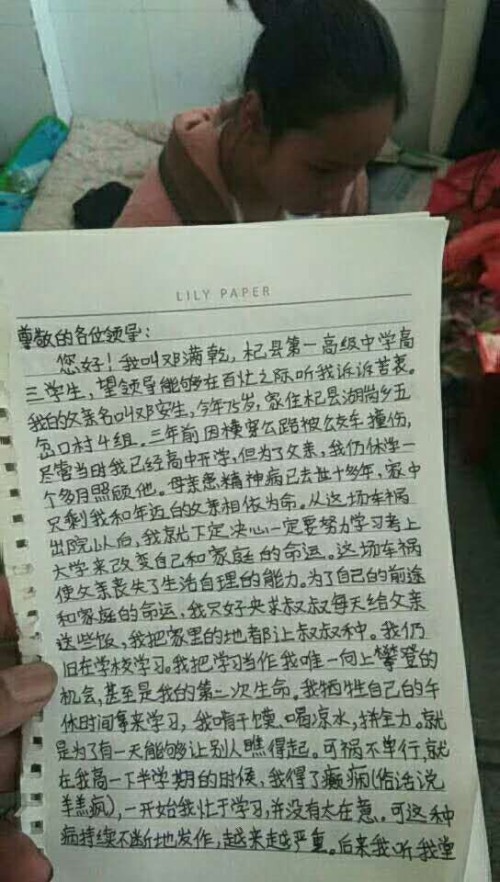 LILY PAPER
尊敬的各位领导:
您好!我叫邓满乾,杞县第一高级中学高
三学生,望领导能够在百忙之际听我诉诉苦衷。
我的父亲名叫邓安生,今年75岁,家住杞县湖岗乡五
岔口村4组。三年前因横穿公路被公交车撞伤,
尽管当时我已经高中开学,但为了父亲,我仍休学一
个多月照顾他。母亲患精神病已去世十多年,家中
只剩我和年迈的父亲相依为命。从这场车祸
出院以后,我就下定决心一定要努力学习考上
大学来改变自己和家庭的命运。这场车祸
使父亲丧失了生活自理的能力。为了自己的前途
和家庭的命运,我只好央求叔叔每天给父亲
送些饭,我把家里的地都让叔叔种。我仍
旧在学校学习。我把学习当作我唯一向上攀登的
机会,甚至是我的第二次生命。我牺牲自己的午
休时间拿来学习,我啃干馍、喝凉水,拼全力。就
是为了有一天能够让别人瞧得起。可祸不单行,就
在我高一下半学期的时候,我得了癫痫(俗话说
羊羔疯),一开始我忙于学习,并没有太在意。可这种
病持续不断地发作,越来越严重。后来我听我堂